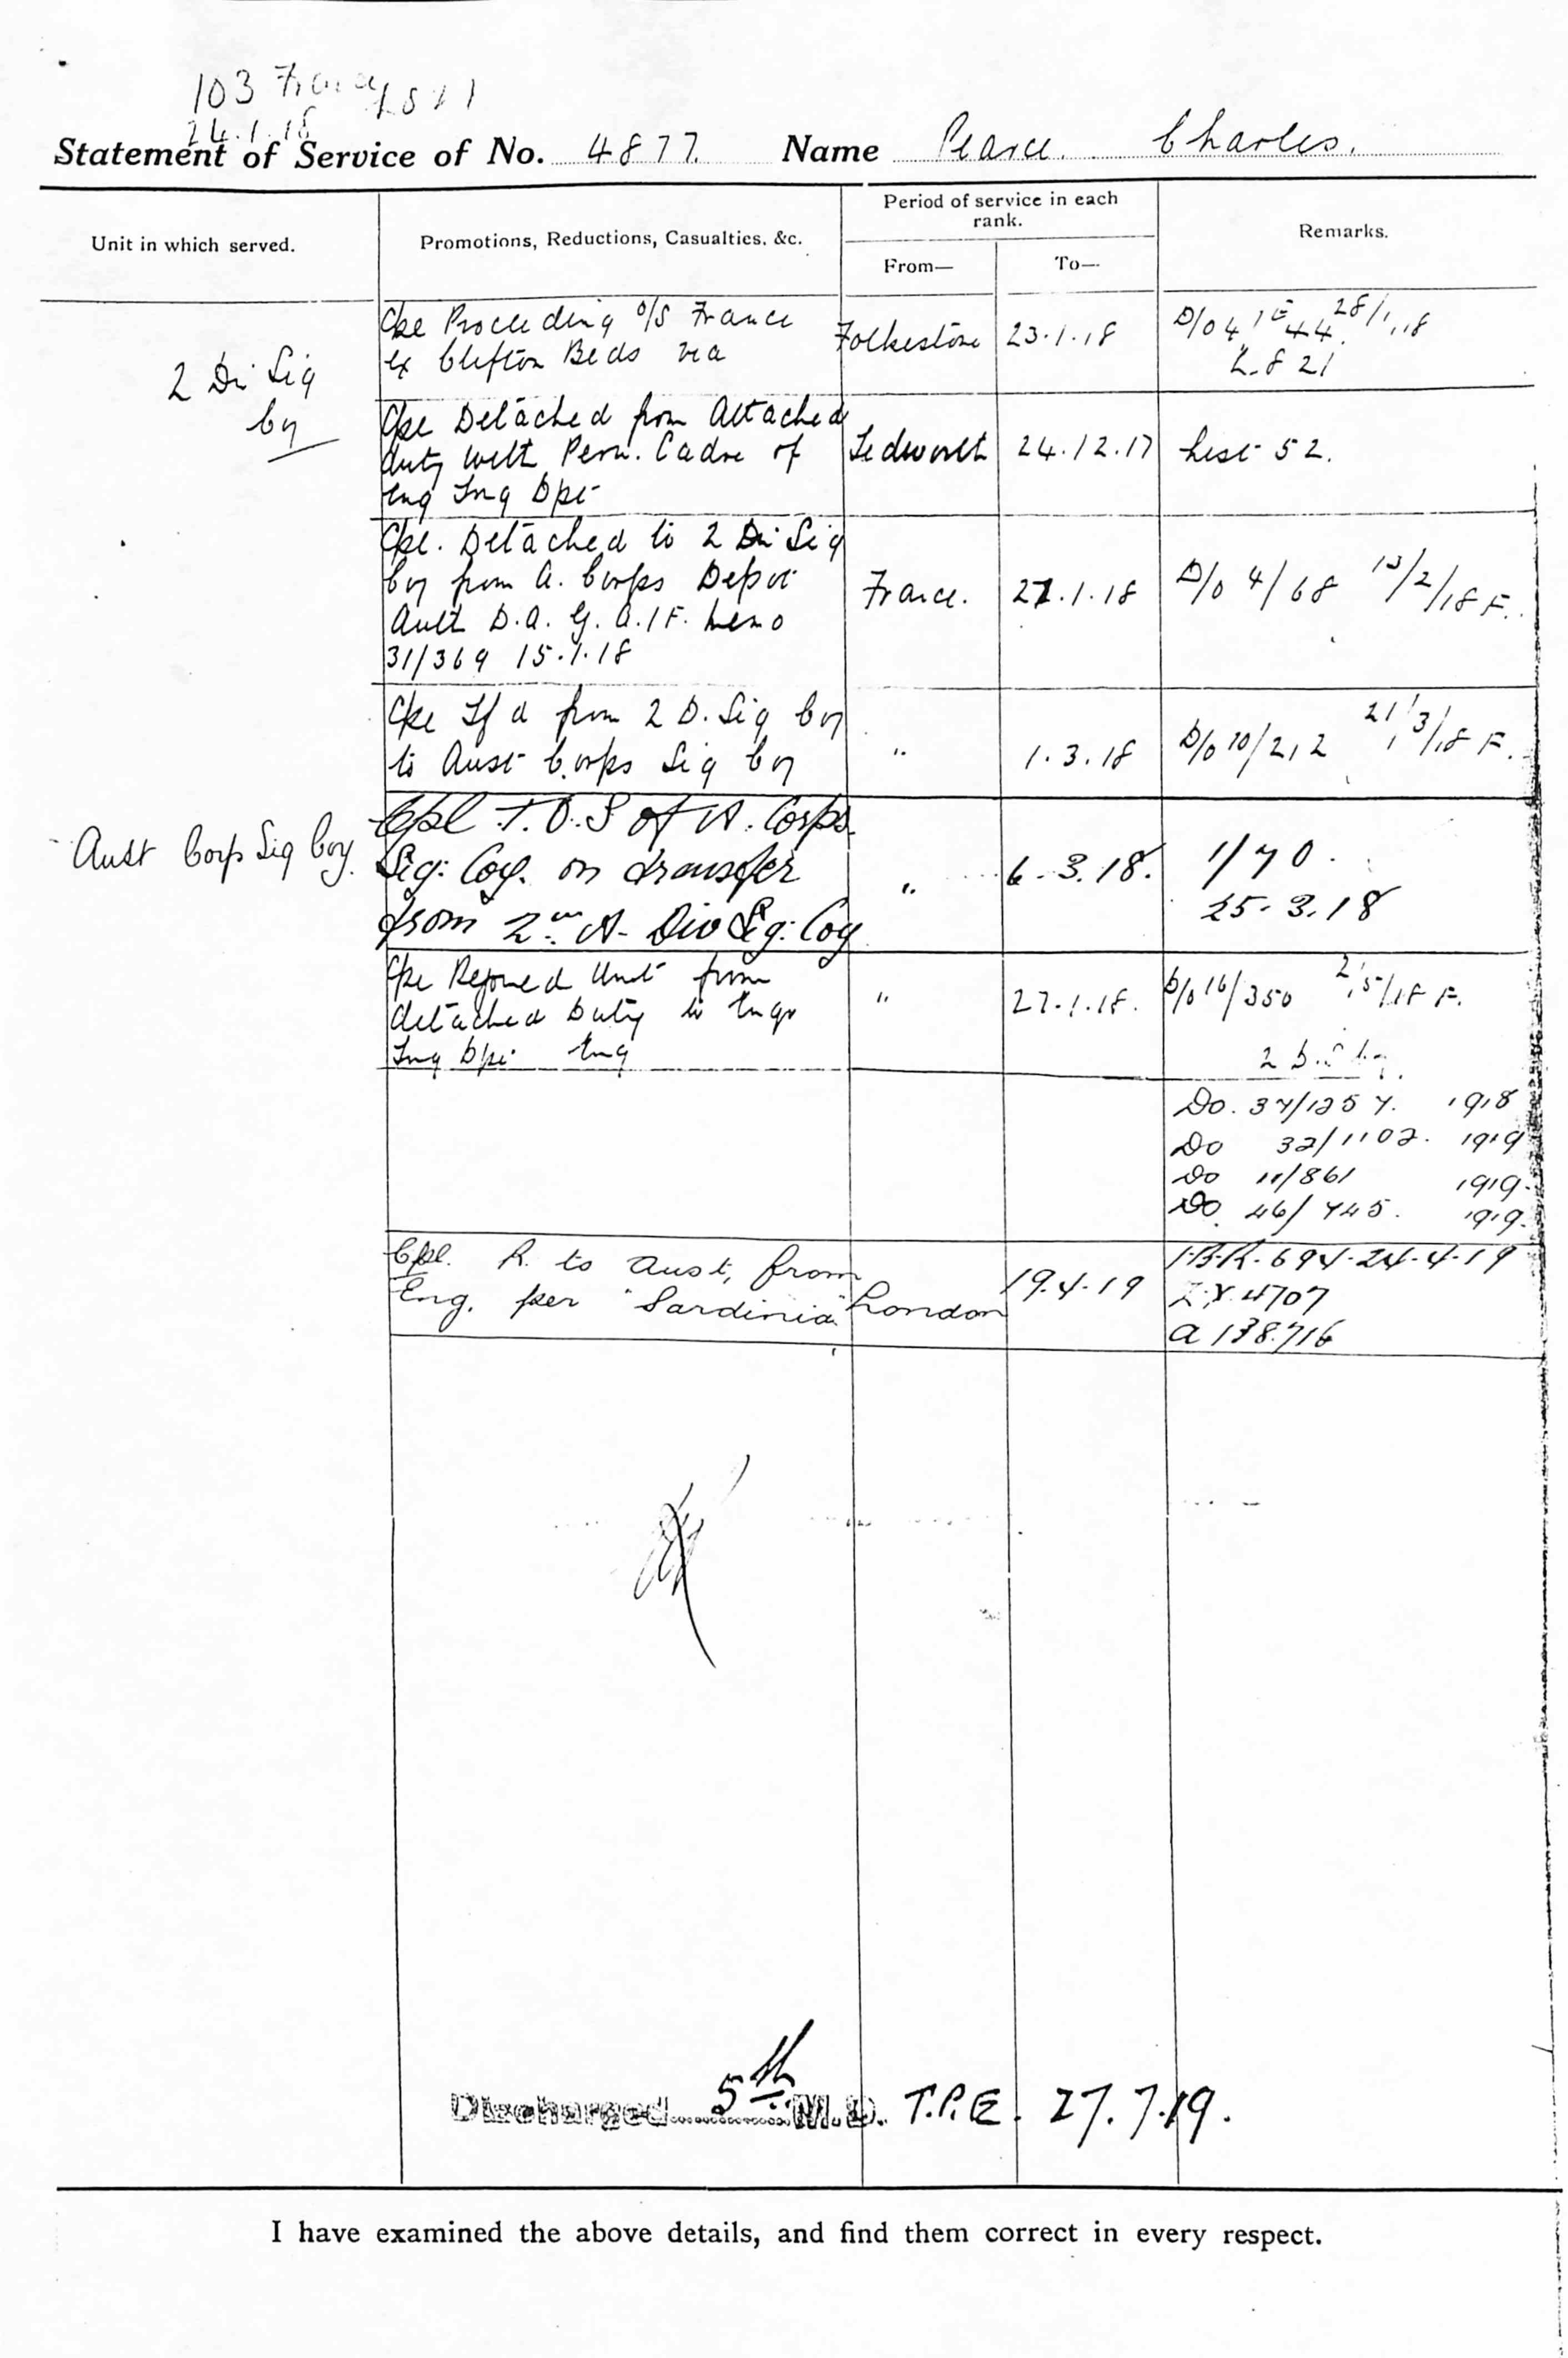 103 France
24.1.18
Statement of Service of No. 4877. Name Pearce. Charles.
Unit in which served.
Promotions, Reductions, Casualties, &c.
Period of service in each rank.
From—
To—
Remarks.
2 Di Sig
Coy
Cpl Proceeding o/S France
ex Clifton Beds via
Folkestone
23.1.18
28/1/18
L 821
Cpl Detached from Attached
duty with Perm. Cadre of
Eng Tng Dpt
Tedworth
24.12.17
List 52.
Cpl. Detached to 2 Di Sig
Coy from A. Corps Depot
Auth D.A.G. A.I.F. Memo
31/369 15.1.18
France.
27.1.18
D/o 4/68 13/2/18 F.
Cpl Tf d from 2 D. Sig Coy
to Aust Corps Sig Coy
"
1.3.18
D/o 10/212 21/3/18 F.
Aust Corps Sig Coy.
Cpl T.O.S of A. Corps
Sig: Coy. on transfer
from 2nd A. Div Sig: Coy
"
6.3.18.
1/70.
25.3.18
Cpl Rejoined Unit from
detached Duty to Engr
Tng Dpt Eng
"
27.1.18.
D/o 16/350 2/5/18 F.
Do. 37/1257. 1918
Do 32/1102. 1919
Do 11/861 1919.
Do 46/745. 1919.
Cpl. R. to Aust, from
Eng. per "Sardinia"
London
19.4.19
1.B.R. 694-24-4-19
Z.Y. 4707
A 138716
Discharged 5th M.D. T.P.E. 27.7.19.
I have examined the above details, and find them correct in every respect.